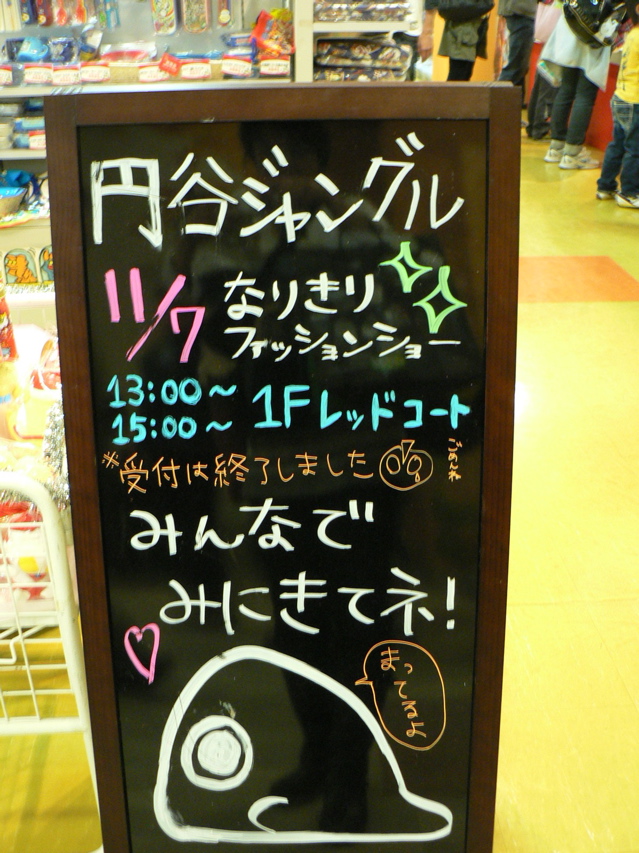 円谷ジャングル
11/7 なりきり
ファッションショー
13:00～
15:00～
1F レッドコート
※受付は終了しました
ごめんね
みんなで
みにきてネ!
まってるよ